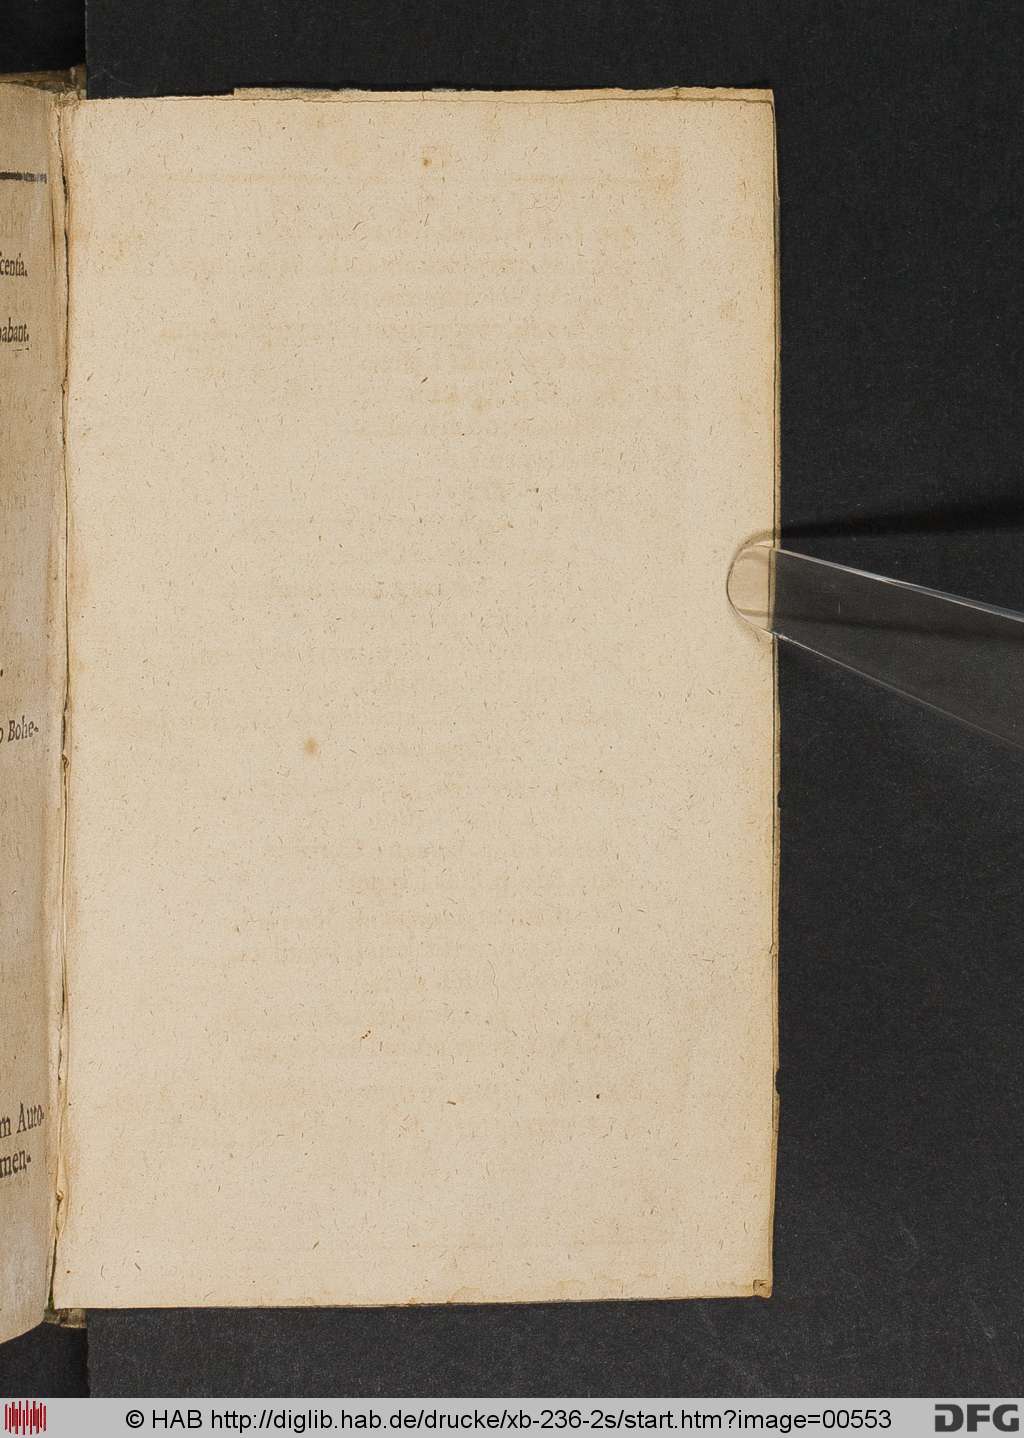 centia.
babant.
o Bohe-
m Auto-
men-
© HAB http://diglib.hab.de/drucke/xb-236-2s/start.htm?image=00553
DFG